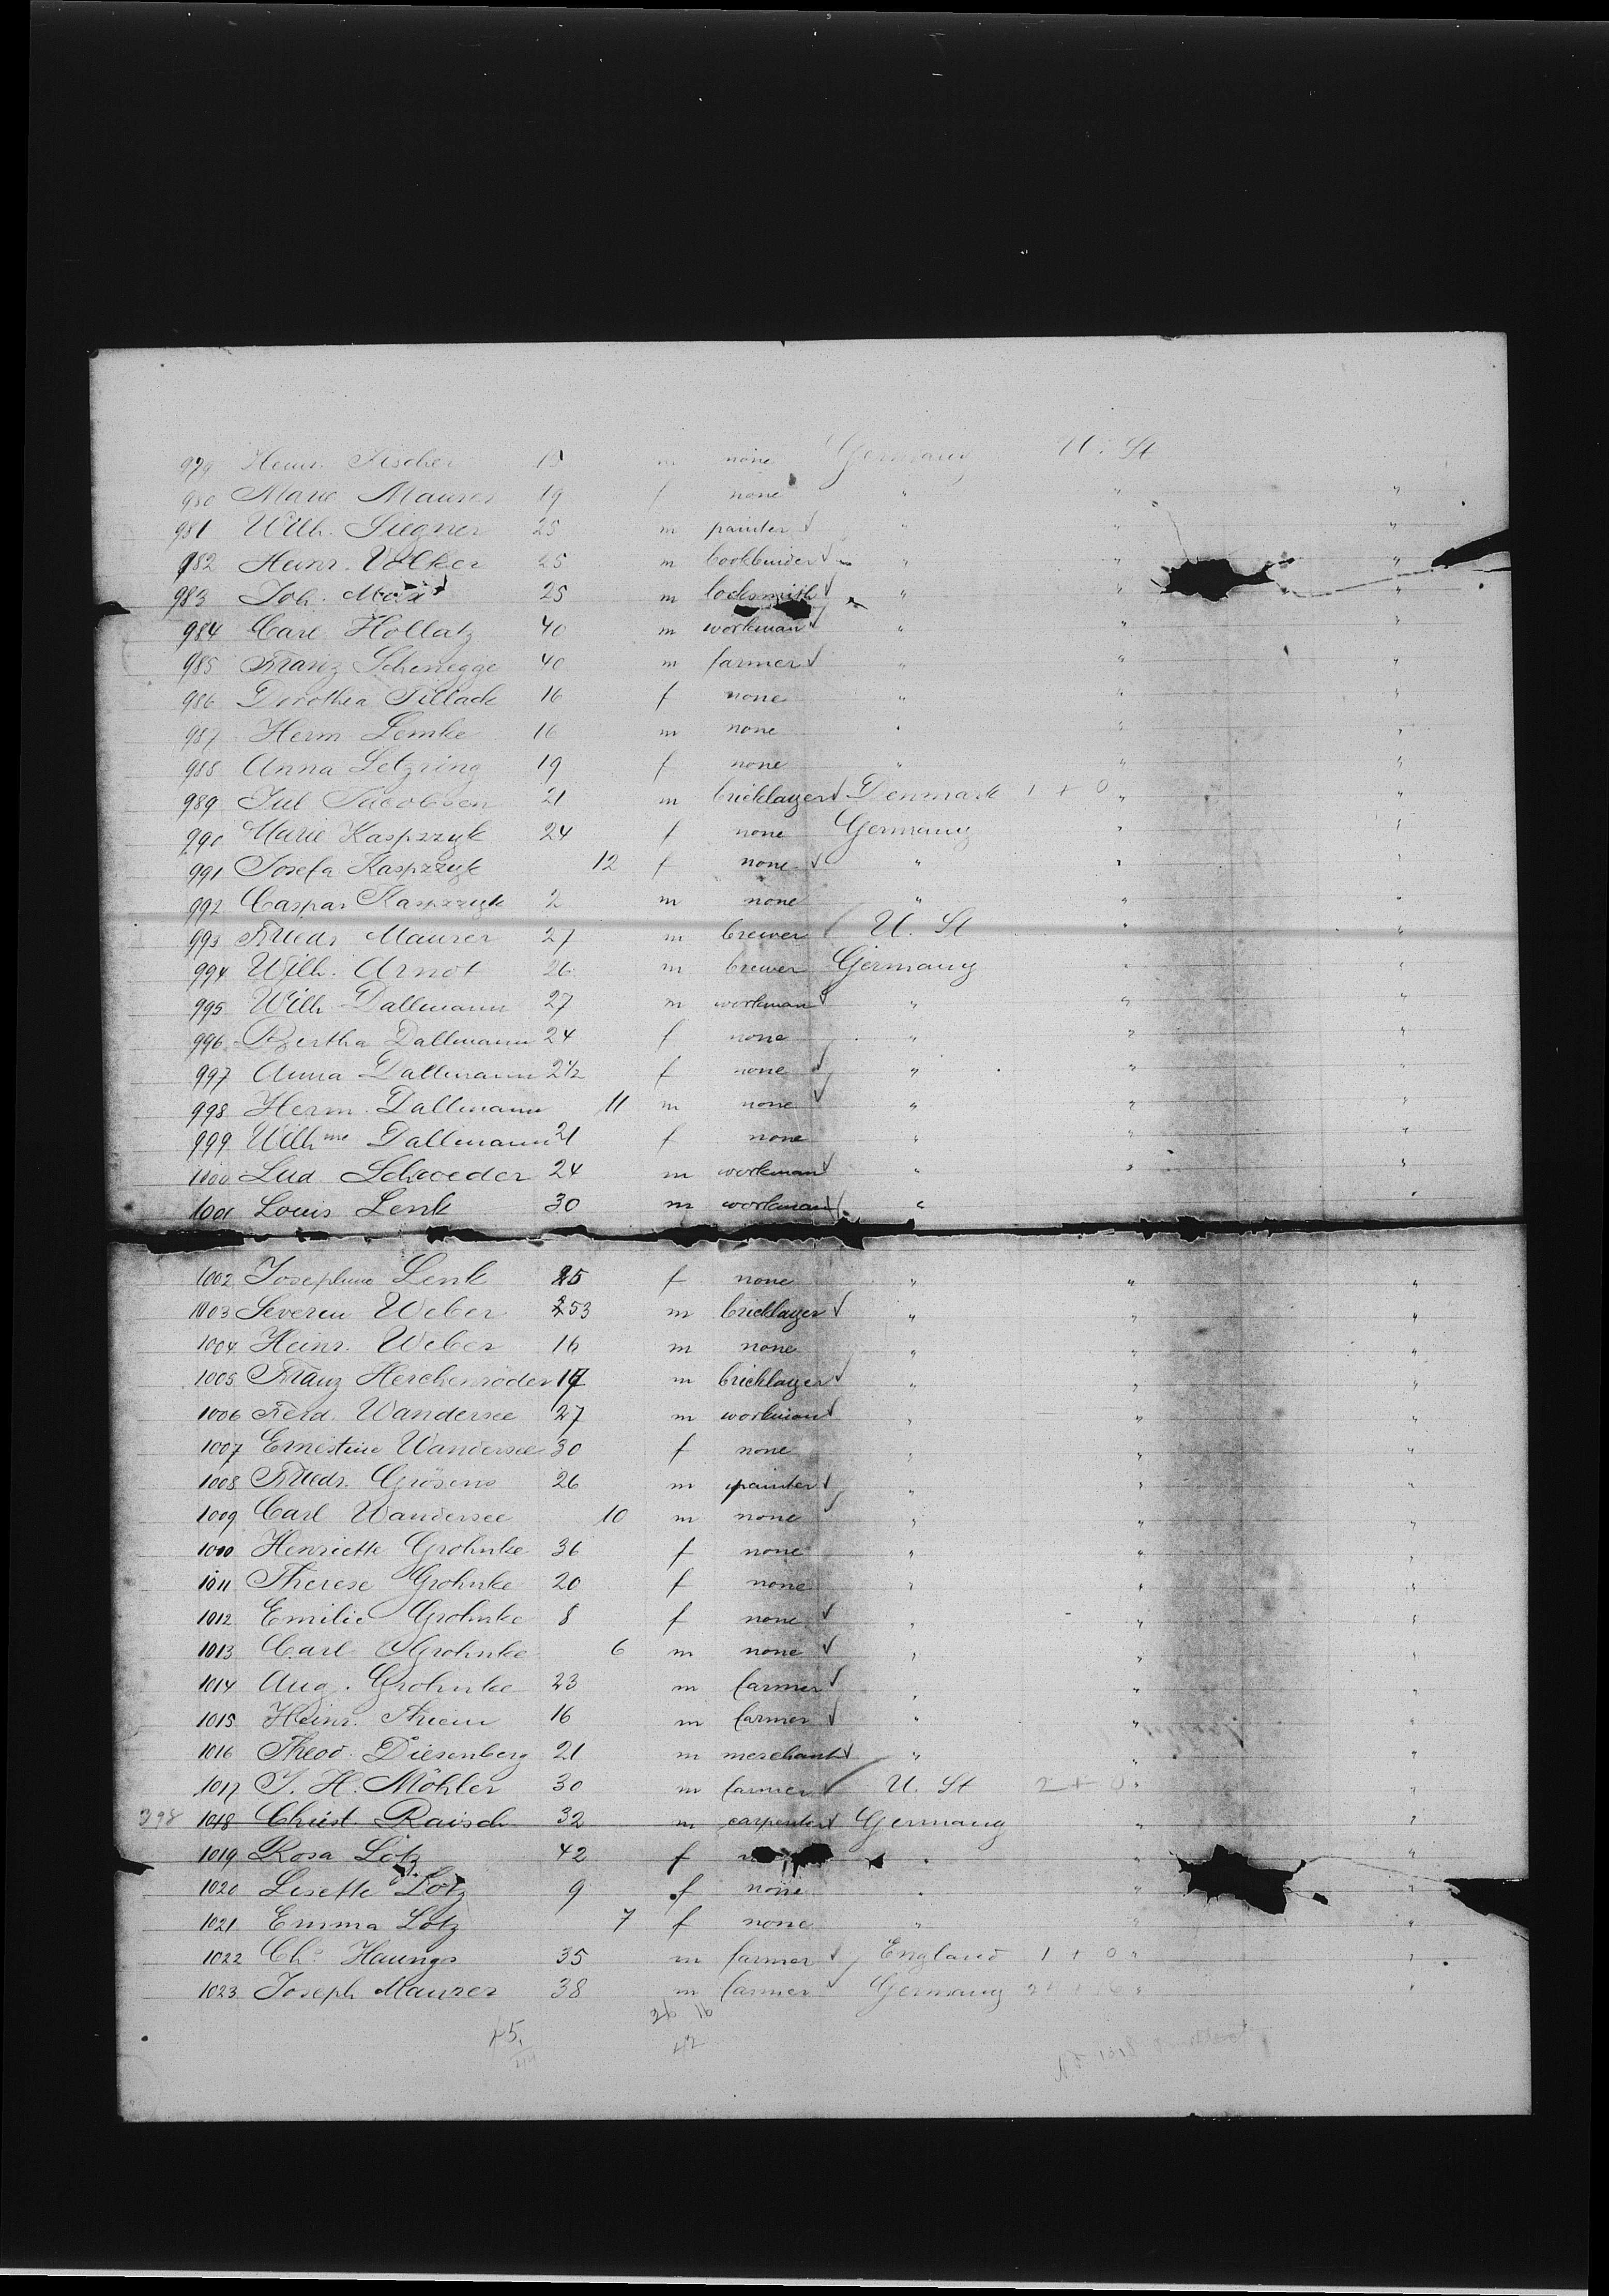 979 Heinr. Fischer 15 m none Germany U. St
980 Marie Maurer 19 f none " " "
981 Wilh. Siegner 25 m painter " " "
982 Heinr. Volker 25 m bookbinder " " "
983 Joh. 25 m locksmith " " "
984 Carl Hollatz 40 m workman " " "
985 Franz Schenegge 40 m farmer " " "
986 Dorothea Tillack 16 f none " " "
987 Herm Lemke 16 m none " " "
988 Anna Letzring 19 f none " " "
989 Jul Jacobsen 21 m bricklayer Denmark 1 + 0 " "
990 Marie Kasprzyk 24 f none Germany " "
991 Josefa Kasprzyk 12 f none " " "
992 Caspar Kasprzyk 2 m none " " "
993 Friedr Maurer 27 m brewer U. St " "
994 Wilh. Arnot 26 m brewer Germany " "
995 Wilh Dallmann 27 m workman " " "
996 Bertha Dallmann 24 f none " " "
997 Anna Dallmann 2½ f none " " "
998 Herm. Dallmann 11 m none " " "
999 Wilhme Dallmann 21 f none " " "
1000 Lud Schroeder 24 m workman " " "
1001 Louis Lenk 30 m workman " "
1002 Josephine Lenk 25 f none " " "
1003 Severin Weber 53 m bricklayer " " "
1004 Heinr. Weber 16 m none " " "
1005 Franz Herchenröder 17 m bricklayer " " "
1006 Ferd. Wandersee 27 m workman " " "
1007 Ernestine Wandersee 30 f none " " "
1008 Friedr. 26 m painter " " "
1009 Carl Wandersee 10 m none " " "
1010 Henriette Grohnke 36 f none " " "
1011 Therese Grohnke 20 f none " " "
1012 Emilie Grohnke 8 f none " " "
1013 Carl Grohnke 6 m none " " "
1014 Aug. Grohnke 23 m farmer " " "
1015 Heinr. Thiem 16 m farmer " " "
1016 Theod. Diesenberg 21 m merchant " " "
1017 J. H. Möhler 30 m farmer U. St 2 + 0 " "
398 1018 Christ. Raisch 32 m carpenter Germany " "
1019 Rosa Lotz 42 f " " "
1020 Lisette Lotz 9 f none " " "
1021 Emma Lotz 7 f none " " "
1022 Chs Haungs 35 m farmer England 1 + 0 " "
1023 Joseph Maurer 38 m farmer Germany " "
26 16
45
42